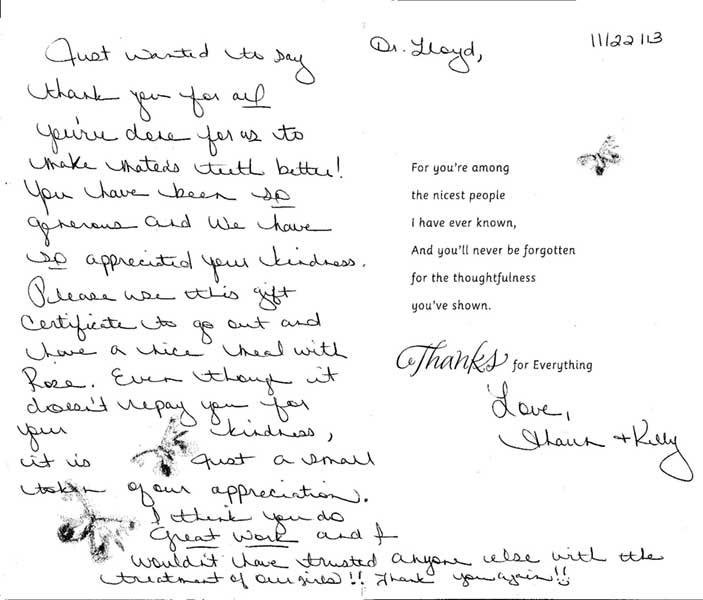 Just wanted to say
thank you for all
you've done for us to
make teeth better!
You have been so
generous and we have
so appreciated your kindness.
Please use this gift
certificate to go out and
have a nice meal with
Rose. Even though it
doesn't repay you for
your kindness,
it is just a small
token of our appreciation.
I think you do
Great work and I
wouldn't have trusted anyone else with the
treatment of our!! Thank you again!!
Dr. Lloyd,
11/22/13
For you're among
the nicest people
I have ever known,
And you'll never be forgotten
for the thoughtfulness
you've shown.
Thanks for Everything
Love,
Shaun + Kelly